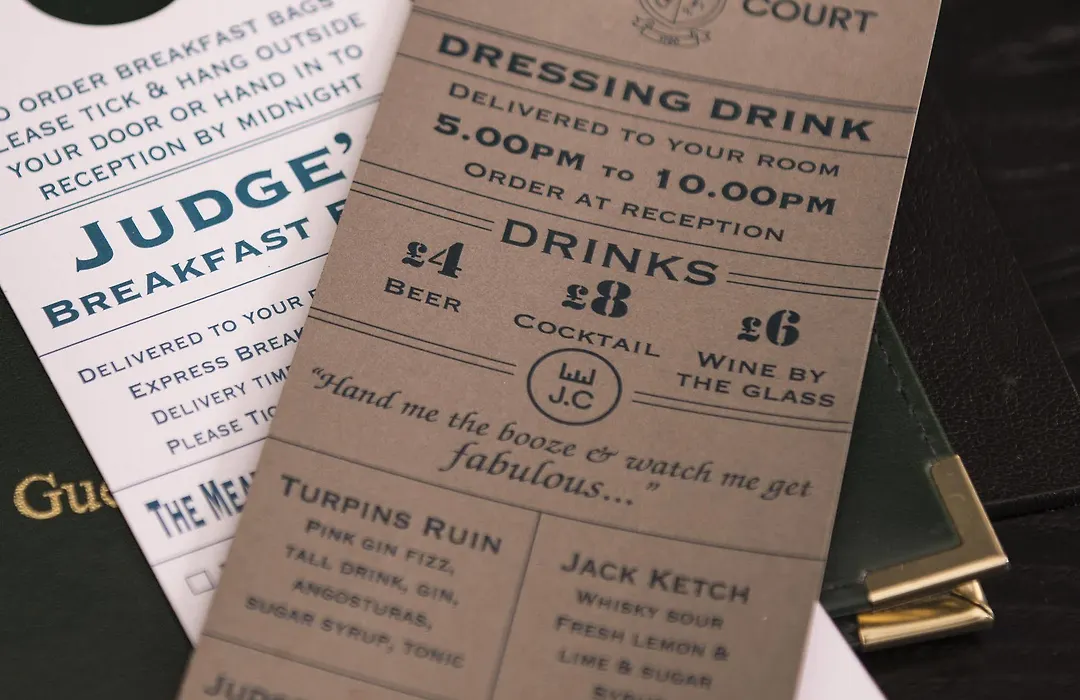 ORDER BREAKFAST BAGS
TICK & HANG OUTSIDE
YOUR DOOR OR HAND IN TO
RECEPTION BY MIDNIGHT
JUDGE'
BREAKFAST
DELIVERED TO YOUR
EXPRESS
DELIVERY
PLEASE
THE
COURT
DRESSING DRINK
DELIVERED TO YOUR ROOM
5.00PM TO 10.00PM
ORDER AT RECEPTION
DRINKS
£4
BEER
£8
COCKTAIL
£6
WINE BY
THE GLASS
J.C
“Hand me the booze & watch me get
fabulous...”
TURPINS RUIN
PINK GIN FIZZ,
TALL DRINK, GIN,
ANGOSTURAS,
SUGAR SYRUP, TONIC
JACK KETCH
WHISKY SOUR
FRESH LEMON &
LIME & SUGAR
SYRUP